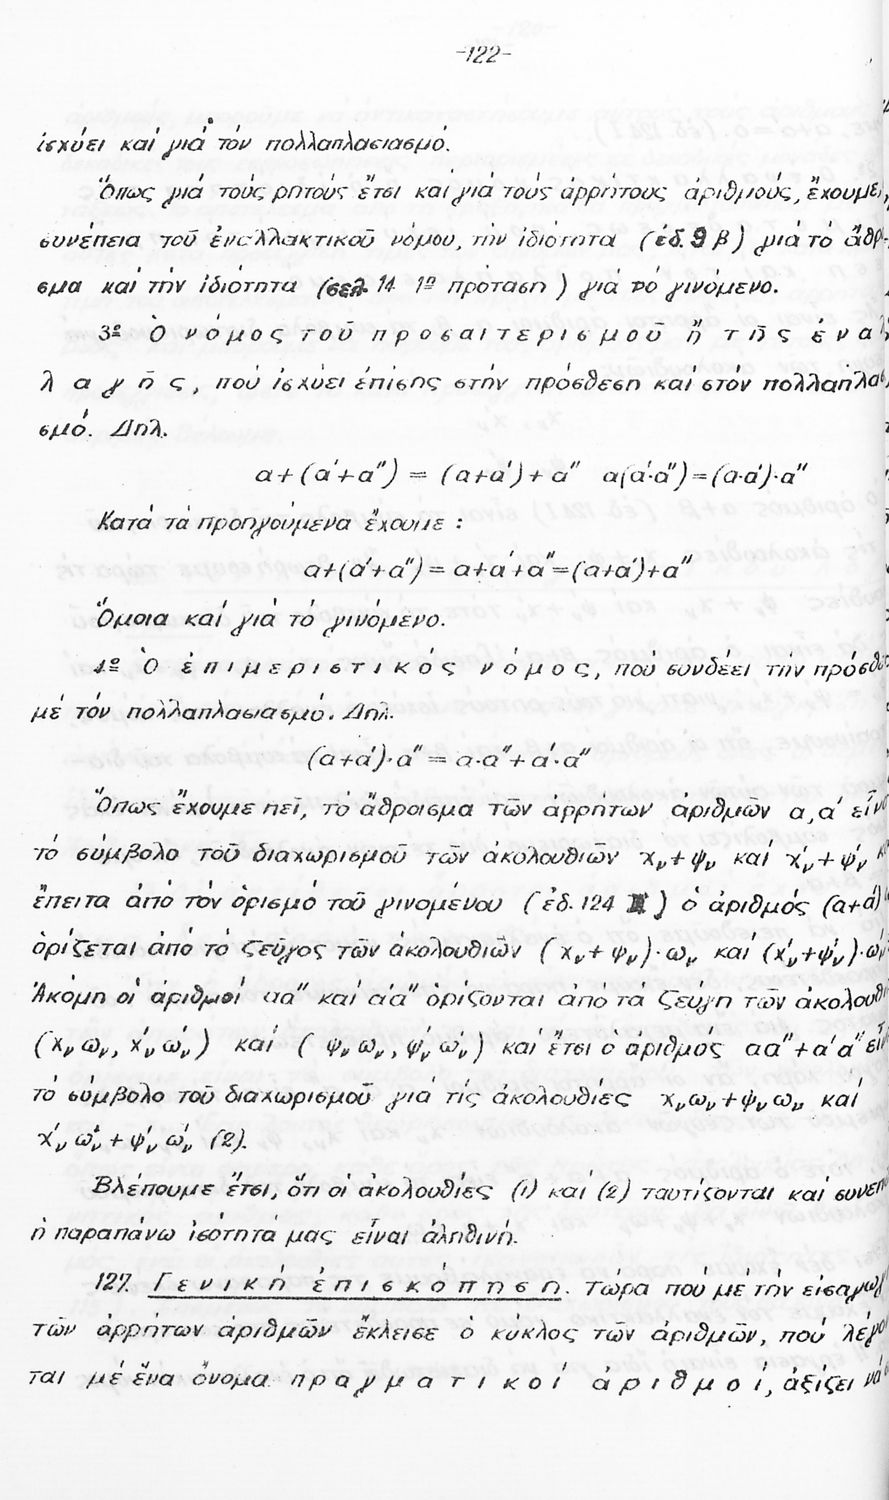 -122-
ἰσχύει καί γιά τόν πολλαπλασιασμό.
Ὅπως γιά τούς ρητούς ἔτσι καί γιά τούς ἀρρήτους ἀριθμούς, ἔχουμε,
συνέπεια τοῦ ἐναλλακτικοῦ νόμου, την ἰδιότητα (ἐδ. 9 β) γιά το ἄθρ-
σμα καί τήν ἰδιότητα (σελ. 14 1η πρόταση) γιά τό γινόμενο.
3º Ὁ νόμος τοῦ προσαιτερισμοῦ ἤ τῆς ἐναλ
λαγῆς, πού ἰσχύει ἐπίσης στήν πρόσθεση καί στόν πολλαπλασ
σμό. Δηλ.
α+(α΄+α΄΄) = (α+α΄)+α΄΄ α(α΄·α΄΄)=(α·α΄)·α΄΄
Κατά τά προηγούμενα ἔχουμε :
α+(α΄+α΄΄)= α+α΄+α΄΄=(α+α΄)+α΄΄
Ὅμοια καί γιά τό γινόμενο.
4º Ὁ ἐπιμεριστικός νόμος, πού συνδέει τήν πρόσθε
μέ τόν πολλαπλασιασμό. Δηλ.
(α+α΄)·α΄΄ = α·α΄΄+α΄·α΄΄
Ὅπως ἔχουμε πεῖ, τό ἄθροισμα τῶν ἀρρήτων ἀριθμῶν α,α΄ εἶν
τό σύμβολο τοῦ διαχωρισμοῦ τῶν ἀκολουθιῶν χν+ψν καί χ΄ν+ψ΄ν κ
ἔπειτα ἀπό τόν ὁρισμό τοῦ γινομένου (ἐδ. 124 ) ὁ ἀριθμός (α+α΄)
ὁρίζεται ἀπό τό ζεῦγος τῶν ἀκολουθιῶν (χν+ψν)·ων καί (χ΄ν+ψ΄ν)·ω΄ν
Ἀκόμη οἱ ἀριθμοί αα΄΄ καί α΄α΄΄ ὁρίζονται ἀπό τά ζεύγη τῶν ἀκολουθι
(χν ων, χ΄ν ω΄ν) καί (ψν ων, ψ΄ν ω΄ν) καί ἔτσι ο ἀριθμός αα΄΄+α΄α΄΄ εἶ
τό σύμβολο τοῦ διαχωρισμοῦ γιά τίς ἀκολουθίες χν ων+ψν ων καί
χ΄ν ω΄ν+ψ΄ν ω΄ν (2).
Βλέπουμε ἔτσι, ὅτι οἱ ἀκολουθίες (1) καί (2) ταυτίζονται καί συνεπ
ἡ παραπάνω ἰσότητά μας εἶναι ἀληθινή.
127. Γενική ἐπισκόπηση. Τώρα πού μέ τήν εἰσαγωγ
τῶν ἀρρήτων ἀριθμῶν ἔκλεισε ὁ κύκλος τῶν ἀριθμῶν, πού λέγο
ται μέ ἕνα ὄνομα πραγματικοί ἀριθμοί, ἀξίζει νά